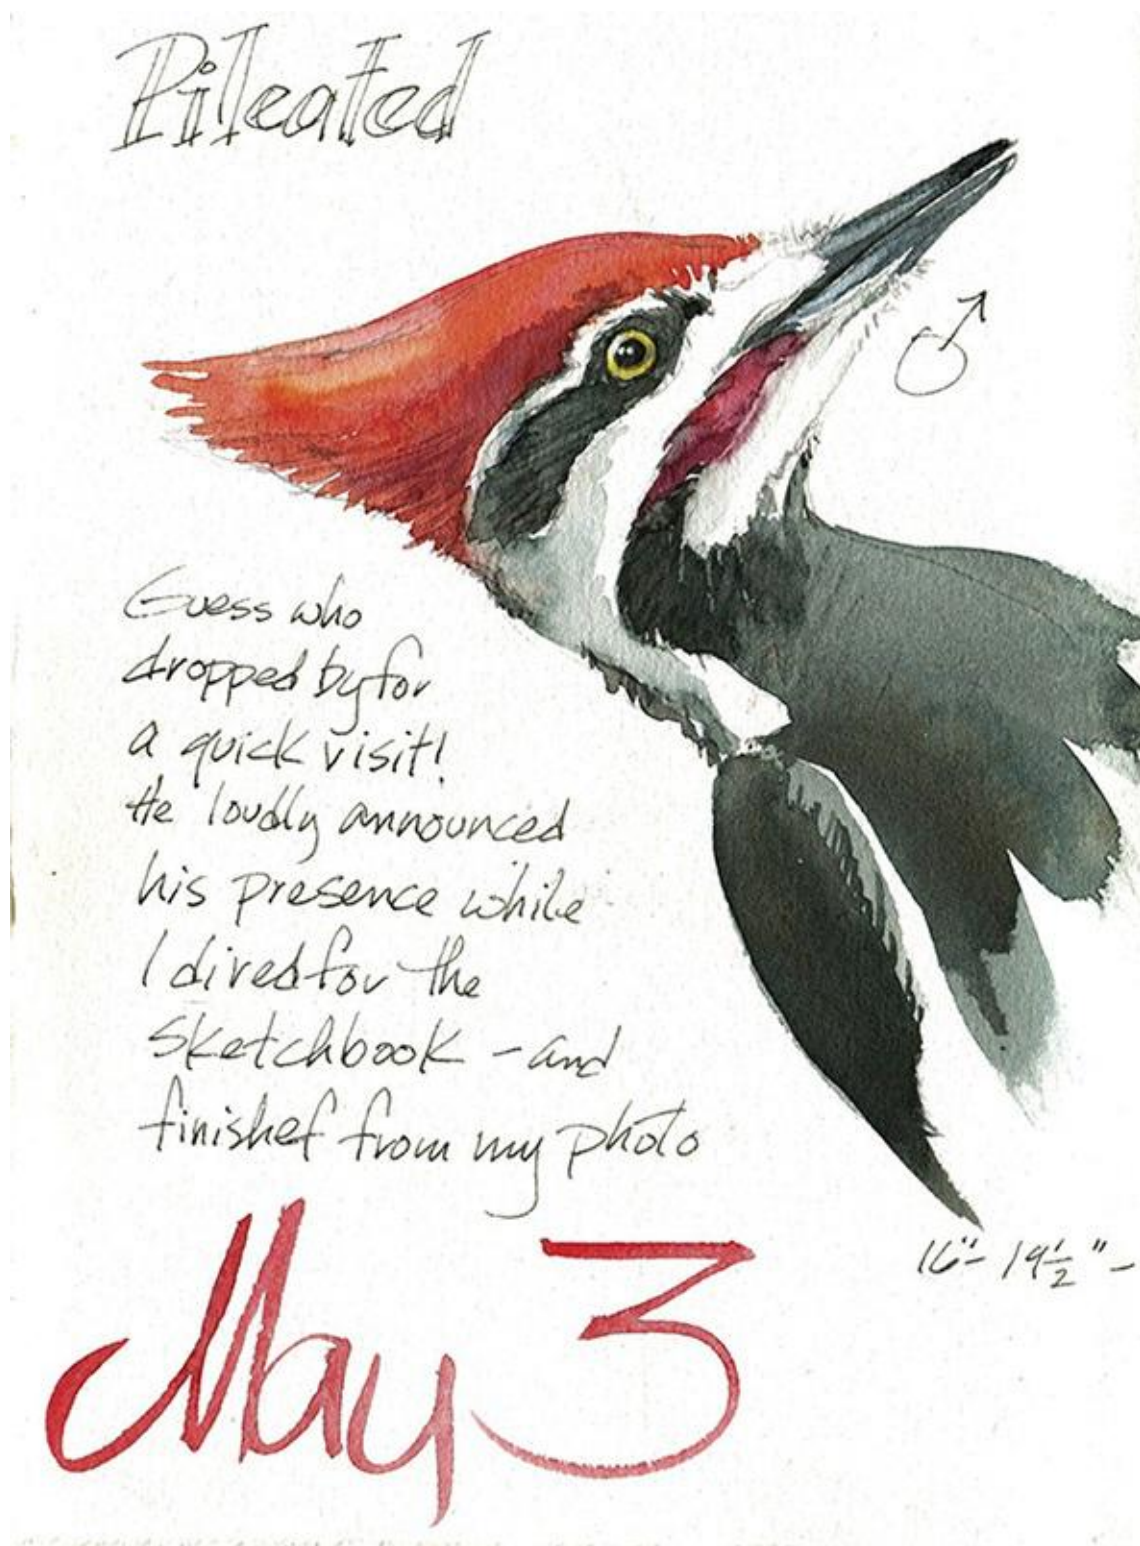 Pileated
♂
Guess who
dropped by for
a quick visit!
He loudly announced
his presence while
I dived for the
sketchbook - and
finished from my photo
16"- 19½"-
May 3